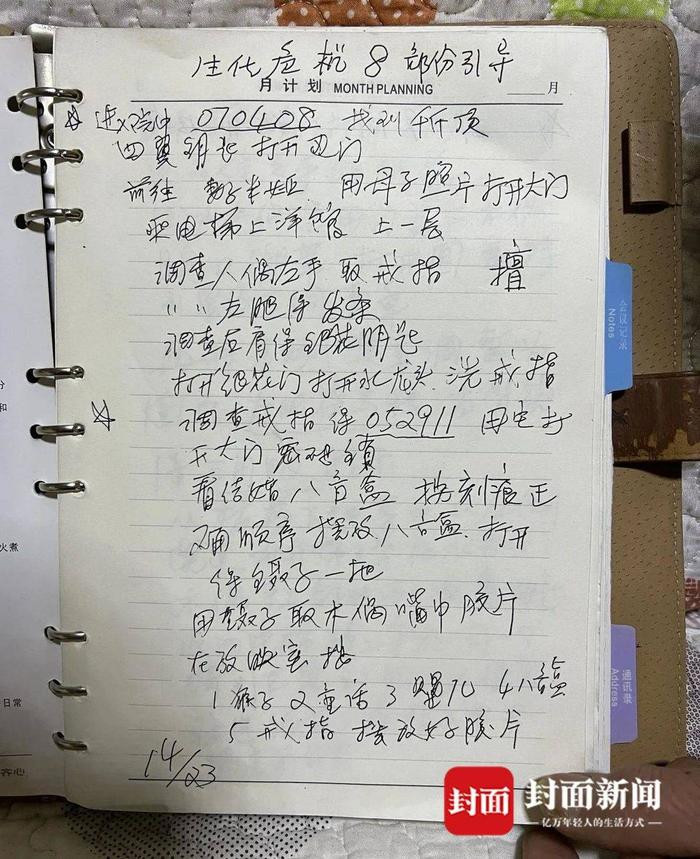 生化危机8部份引导
月计划 MONTH PLANNING 月
进入院中 070408 找到千斤顶
四翼钥匙打开边门
前往 用母子照片打开大门
乘电梯上洋馆 上一层
调查人偶左手取戒指
〃〃左腿得发条
调查后看得银花钥匙
打开银花门打开水龙头洗戒指
调查戒指得 052911 用它打
开大门密码锁
看结婚八音盒 按刻痕正
确顺序摆放八音盒.打开
得到镊子一把
用镊子取木偶嘴中胶片
在放映室按
1猴子 2童话 3婴儿 4八音盒
5戒指 摆放好胶片
14/23
会议记录
Notes
通讯录
Address
分
和
火煮
日常
齐心
封面 封面新闻
亿万年轻人的生活方式